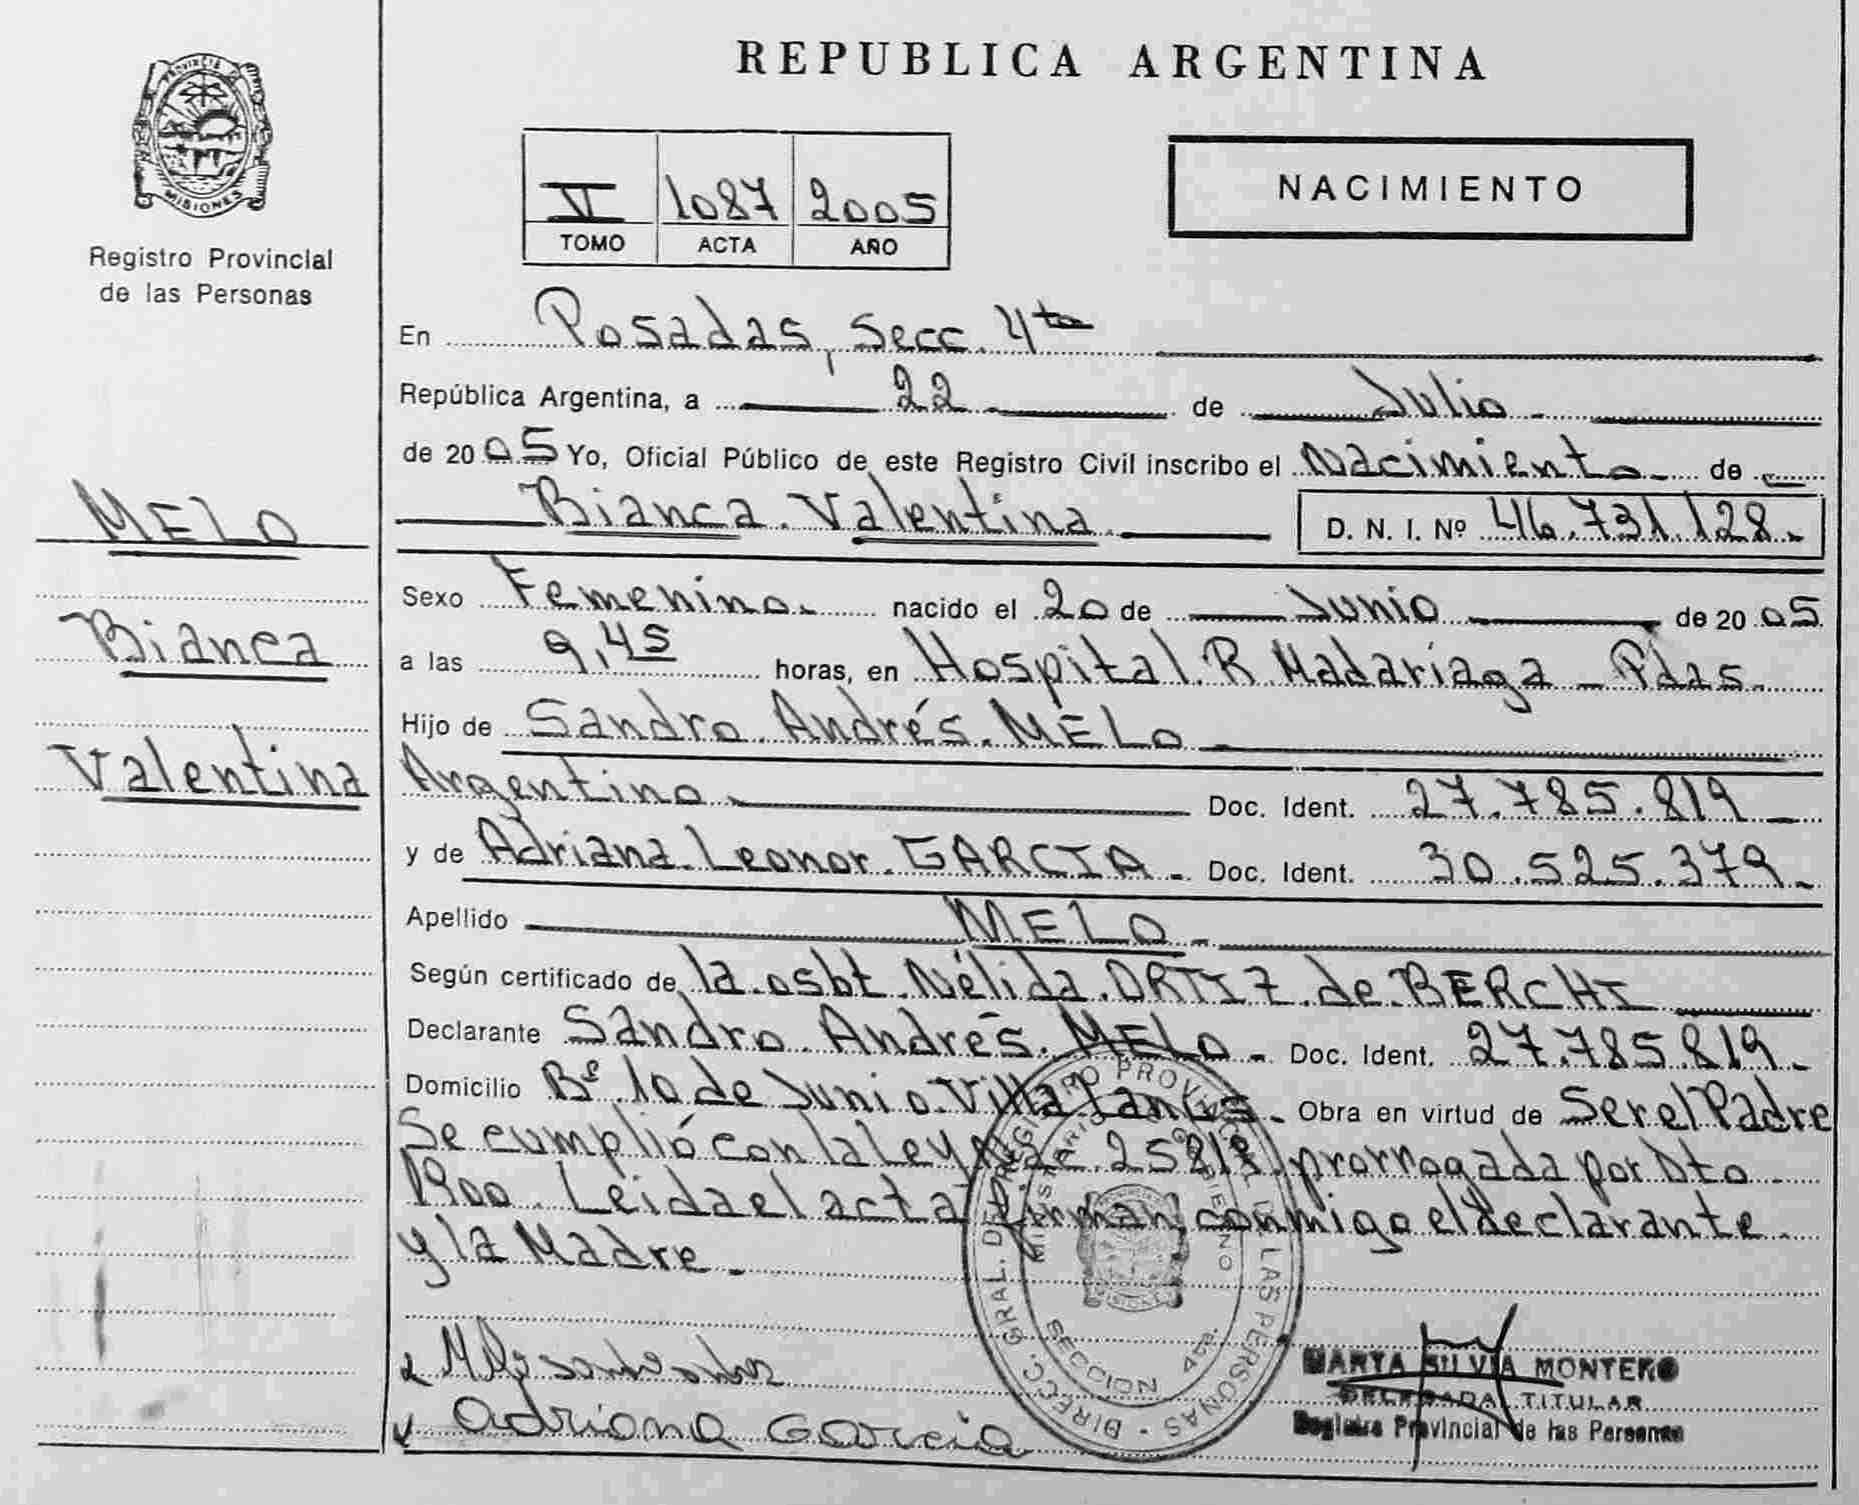 PROVINCIA DE
MISIONES
Registro Provincial
de las Personas
MELO
Bianca
Valentina
REPUBLICA ARGENTINA
VI 1087 2005
TOMO ACTA AÑO
NACIMIENTO
En Posadas, Secc. 4ta
República Argentina, a 22 de Julio
de 2005 Yo, Oficial Público de este Registro Civil inscribo el Nacimiento de
Bianca Valentina D. N. I. Nº 46.731.128.-
Sexo Femenino. nacido el 20 de Junio de 2005
a las 9,45 horas, en Hospital R. Madariaga - Pdas.
Hijo de Sandro Andrés MELO
Argentino Doc. Ident. 27.785.819
y de Adriana Leonor GARCIA - Doc. Ident. 30.525.379-
Apellido MELO -
Según certificado de la osbt. Nélida ORTIZ de BERCHI
Declarante Sandro Andrés MELO - Doc. Ident. 27.785.819-
Domicilio Bº 10 de Junio Villa Lanús - Obra en virtud de Ser el Padre
Se cumplió con la ley 25819 prorrogada por Dto
1900. Leida el acta firman conmigo el declarante
y la Madre.
Adriana Garcia
DIRECC. GRAL. DEL REGISTRO PROVINCIAL DE LAS PERSONAS
MINISTERIO DE GOBIERNO
SECCION 4ta.
MARTA SILVIA MONTERO
DELEGADA TITULAR
Registro Provincial de las Personas